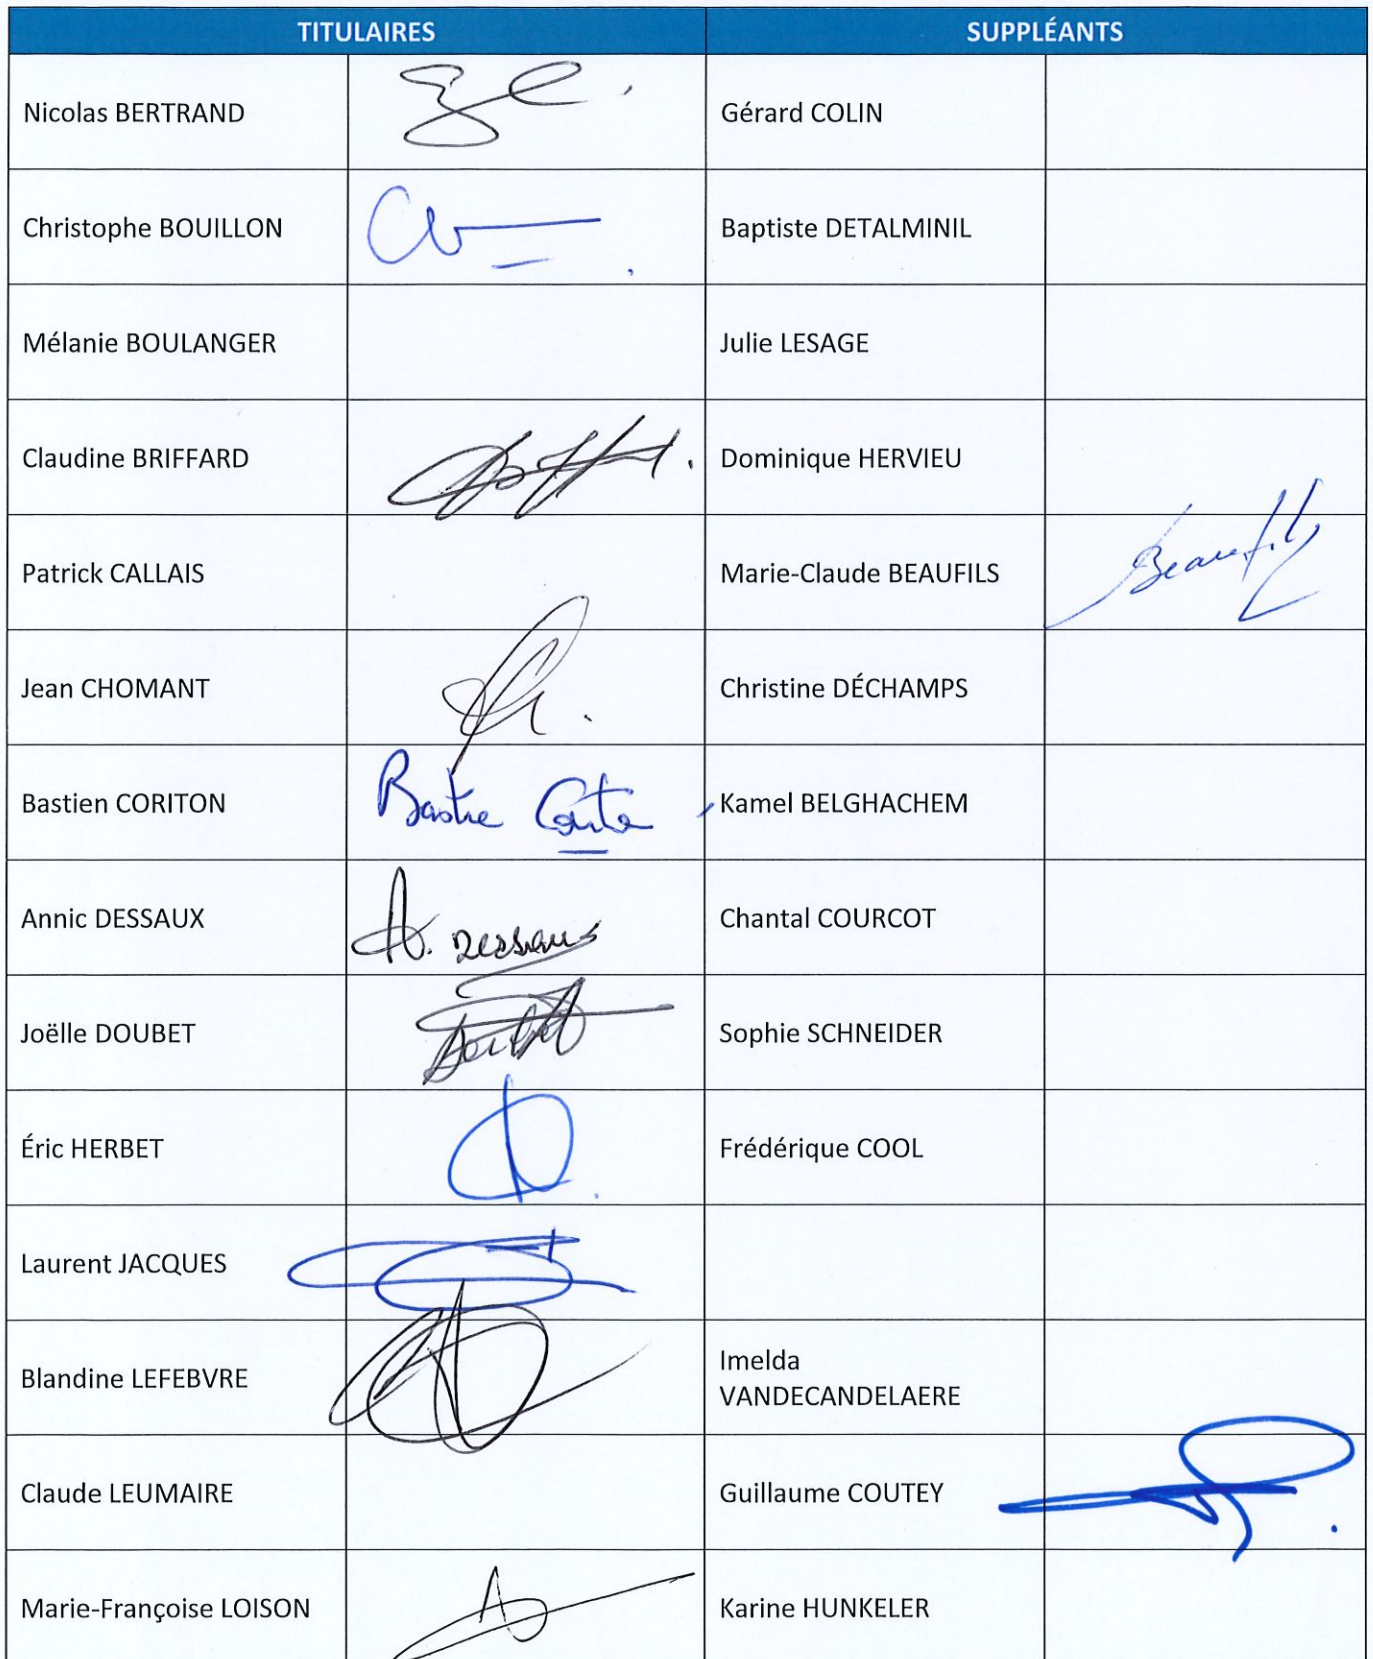 TITULAIRES SUPPLÉANTS
Nicolas BERTRAND Gérard COLIN
Christophe BOUILLON Baptiste DETALMINIL
Mélanie BOULANGER Julie LESAGE
Claudine BRIFFARD Dominique HERVIEU
Patrick CALLAIS Marie-Claude BEAUFILS Beaufils
Jean CHOMANT Christine DÉCHAMPS
Bastien CORITON Kamel BELGHACHEM
Annic DESSAUX A. Dessaux Chantal COURCOT
Joëlle DOUBET Sophie SCHNEIDER
Éric HERBET Frédérique COOL
Laurent JACQUES
Blandine LEFEBVRE Imelda
VANDECANDELAERE
Claude LEUMAIRE Guillaume COUTEY
Marie-Françoise LOISON Karine HUNKELER